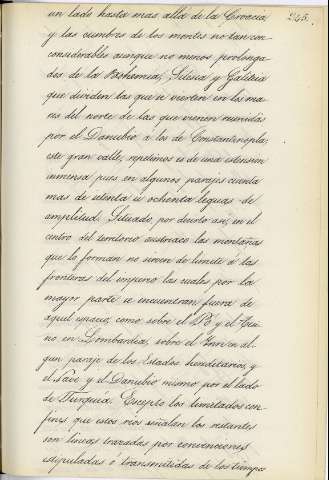 245.
un lado hasta mas alla de la Croacia
y las cumbres de los montes no tan con-
considerables aunque no menos prolonga-
dos de la Bohemia, Silesia y Galitzia
que dividen las que se vierten en los ma-
res del norte de las que vienen reunidas
por el Danubio a los de Constantinopla:
este gran valle, repetimos es de una estension
inmensa pues en algunos parajes cuenta
mas de setenta u ochenta leguas de
amplitud. Situado, por decirlo asi, en el
centro del territorio austriaco las montañas
que lo forman no sirven de limite á las
fronteras del imperio las cuales por la
mayor parte se encuentran fuera de
aquel espacio, como sobre el Pó y el
no en Lombardia, sobre el Inn en al-
gun paraje de los Estados hereditarios, y
el Save y el Danubio mismo por el lado
de Turquia. Escepto los limitados con-
fines que estos rios señalan los restantes
son lineas trazadas por convenciones
estipuladas ó transmitidas de los tiempos